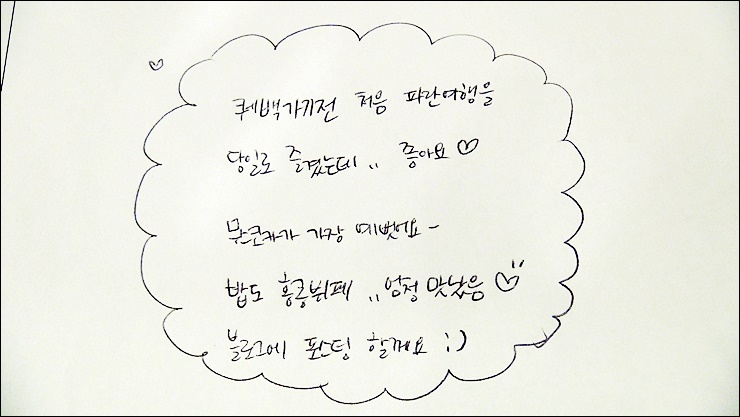 퀘백가기전 처음 파란여행을
당일로 즐겼는데,, 좋아요♡
가 가장 예뻣네요~
밥도 홍콩뷔페,, 엄청 맛났음♡
블로그에 포스팅 할께요 :)